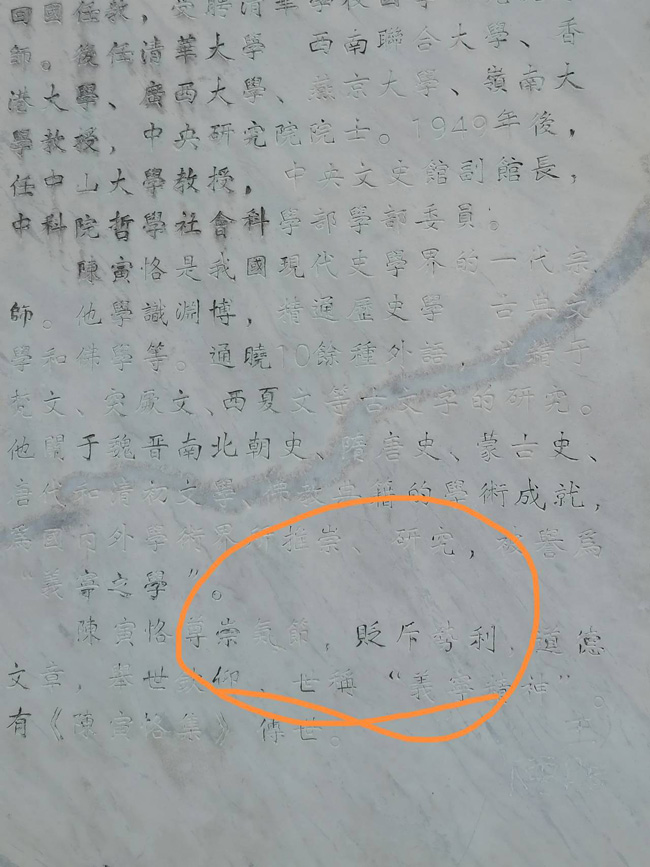 回國任教，受聘清華學校國學
師。後任清華大學 西南聯合大學、香
港大學、廣西大學、燕京大學、嶺南大
學教授，中央研究院院士。1949年後，
任中山大學教授，中央文史館副館長，
中科院哲學社會科學部學部委員。
陳寅恪是我國現代史學界的一代宗
師。他學識淵博，精通歷史學 古典文
學和佛學等。通曉10餘種外語，尤精于
梵文、突厥文、西夏文等古文字的研究。
他關于魏晉南北朝史、隋唐史、蒙古史、
唐代和清初文學、佛教典籍的學術成就，
爲國内外學術界所推崇、研究，被譽爲
“義寧之學”。
陳寅恪尊崇氣節，貶斥勢利，道德
文章，舉世欽仰，世稱“義寧精神”。
有《陳寅恪集》傳世。